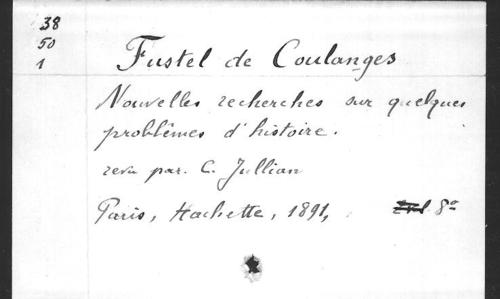 38
50
1
Fustel de Coulanges
Nouvelles recherches sur quelques
problêmes d'histoire.
revu par. C. Jullian
Paris, Hachette, 1891, 8°